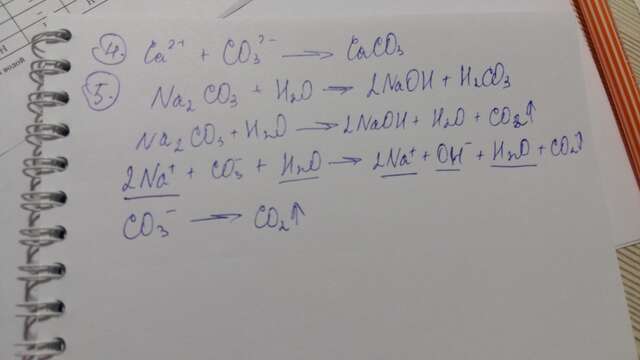 4. Ca²⁺ + CO₃²⁻ → CaCO₃
5. Na₂CO₃ + H₂O → 2NaOH + H₂CO₃
Na₂CO₃ + H₂O → 2NaOH + H₂O + CO₂↑
2Na⁺ + CO₃⁻ + H₂O → 2Na⁺ + OH⁻ + H₂O + CO₂↑
CO₃⁻ → CO₂↑